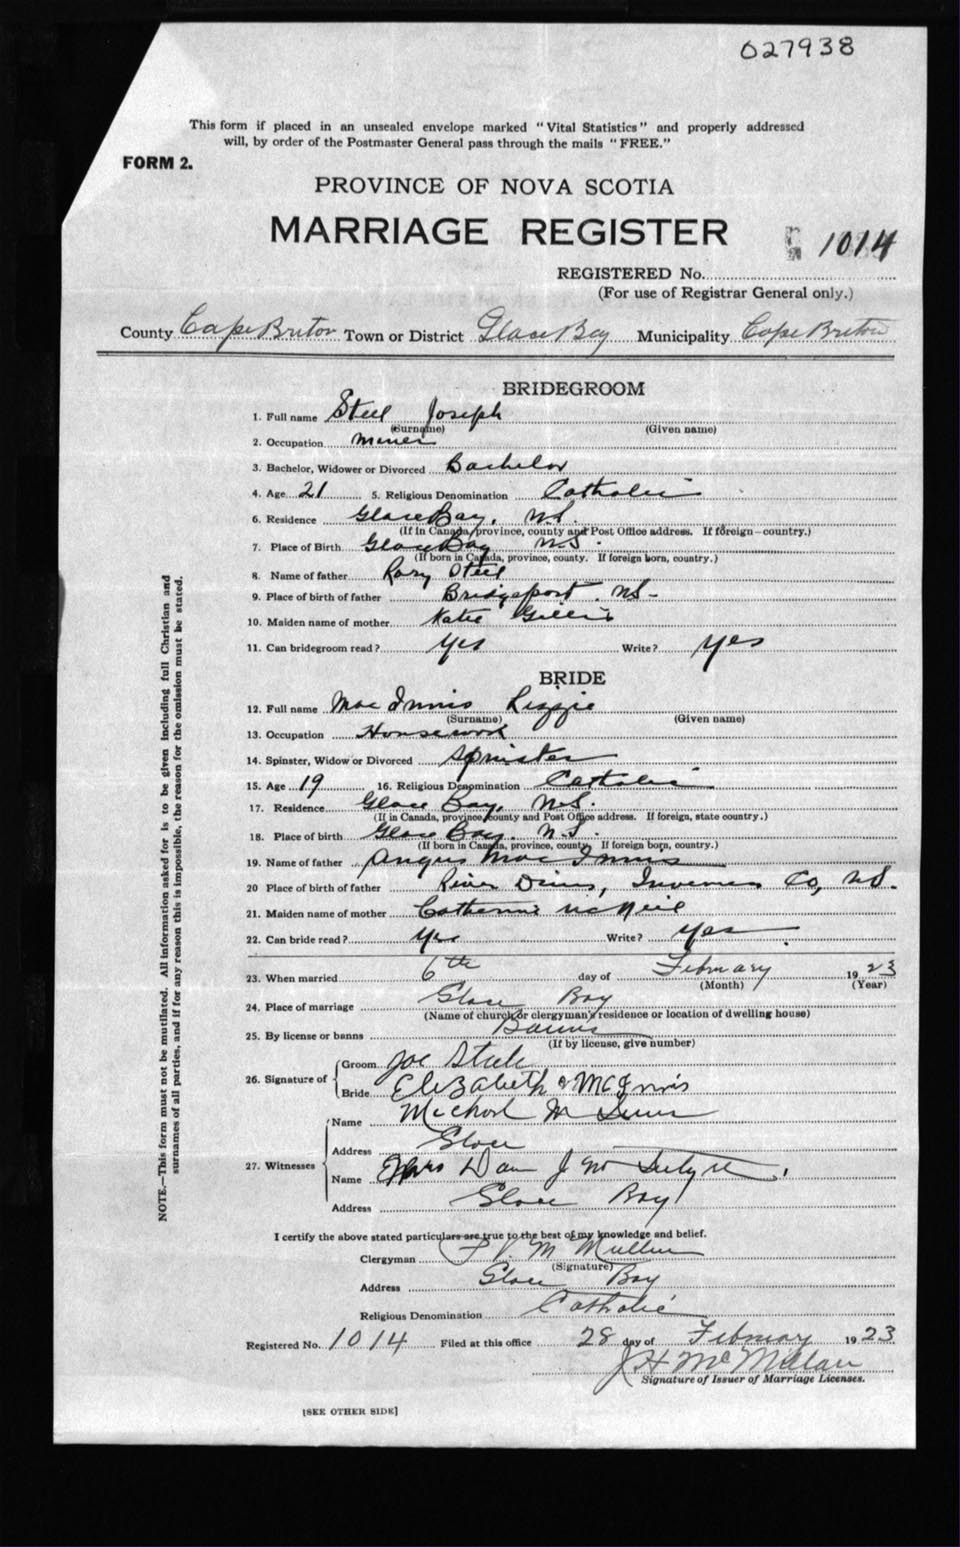 027938
This form if placed in an unsealed envelope marked "Vital Statistics" and properly addressed
will, by order of the Postmaster General pass through the mails "FREE."
FORM 2.
PROVINCE OF NOVA SCOTIA
MARRIAGE REGISTER
1014
REGISTERED No.
(For use of Registrar General only.)
County Cape Breton Town or District Glace Bay Municipality Cape Breton
BRIDEGROOM
1. Full name Steel Joseph
(Surname) (Given name)
2. Occupation Miner
3. Bachelor, Widower or Divorced Bachelor
4. Age 21 5. Religious Denomination Catholic
6. Residence Glace Bay, N.S.
(If In Canada, province, county and Post Office address. If foreign—country.)
7. Place of Birth Glace Bay N.S.
(If born in Canada, province, county. If foreign born, country.)
8. Name of father Rory Steel
9. Place of birth of father Bridgeport. N.S-
10. Maiden name of mother Katie Gillis
11. Can bridegroom read? Yes Write? Yes
BRIDE
12. Full name MacInnis Lizzie
(Surname) (Given name)
13. Occupation Housework
14. Spinster, Widow or Divorced Spinster
15. Age 19 16. Religious Denomination Catholic
17. Residence Glace Bay, N.S.
(If in Canada, province, county and Post Office address. If foreign, state country.)
18. Place of birth Glace Bay. N.S.
(If born in Canada, province, county. If foreign born, country.)
19. Name of father Angus MacInnis
20 Place of birth of father River Denis, Inverness Co, N.S.
21. Maiden name of mother Catherine McNeil
22. Can bride read? Yes Write? Yes
23. When married 6th day of February 1923
(Month) (Year)
24. Place of marriage Glace Bay
(Name of church or clergyman's residence or location of dwelling house)
25. By license or banns Banns
(If by license, give number)
26. Signature of Groom Joe Steele
Bride Elizabeth McInnis
27. Witnesses
Name
Address Glace
Name Mrs Dan J McIntyre
Address Glace Bay
I certify the above stated particulars are true to the best of my knowledge and belief.
Clergyman
(Signature)
Address Glace Bay
Religious Denomination Catholic
Registered No. 1014 Filed at this office 28 day of February 1923
J H McMillan
Signature of Issuer of Marriage Licenses.
[SEE OTHER SIDE]
NOTE.—This form must not be mutilated. All information asked for is to be given including full Christian and
surnames of all parties, and if for any reason this is impossible, the reason for the omission must be stated.